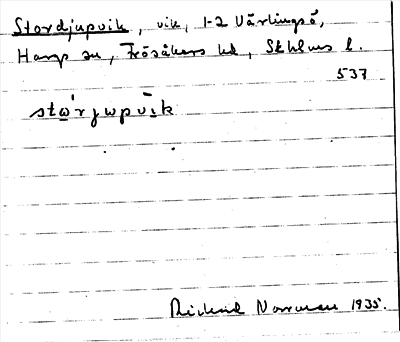 Stordjupvik, vik, 1-2 Värlingsö,
Hargs sn, Frösåkers hd, Sthlms l.
537
stω'rjωpvīk
Rickard Norrman 1935.